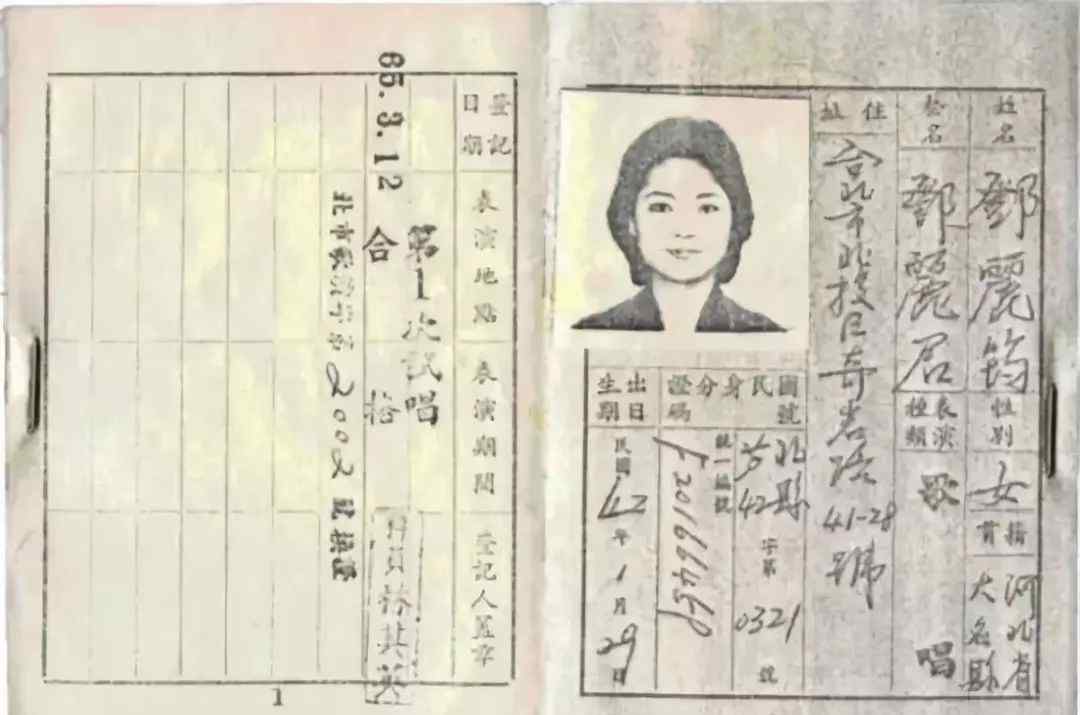 姓名
鄧麗筠
性別
女
籍貫
河北省
大名縣
藝名
鄧麗君
表演
種類
歌唱
住址
台北市北投区奇岩路41-28號
國民身分證
號碼
北縣
42字第0321號
統一編號
出生
日期
民國42年1月29日
登記
日期
表演地點
表演期間
登記人蓋章
第1次試唱
65.3.12
合格
1